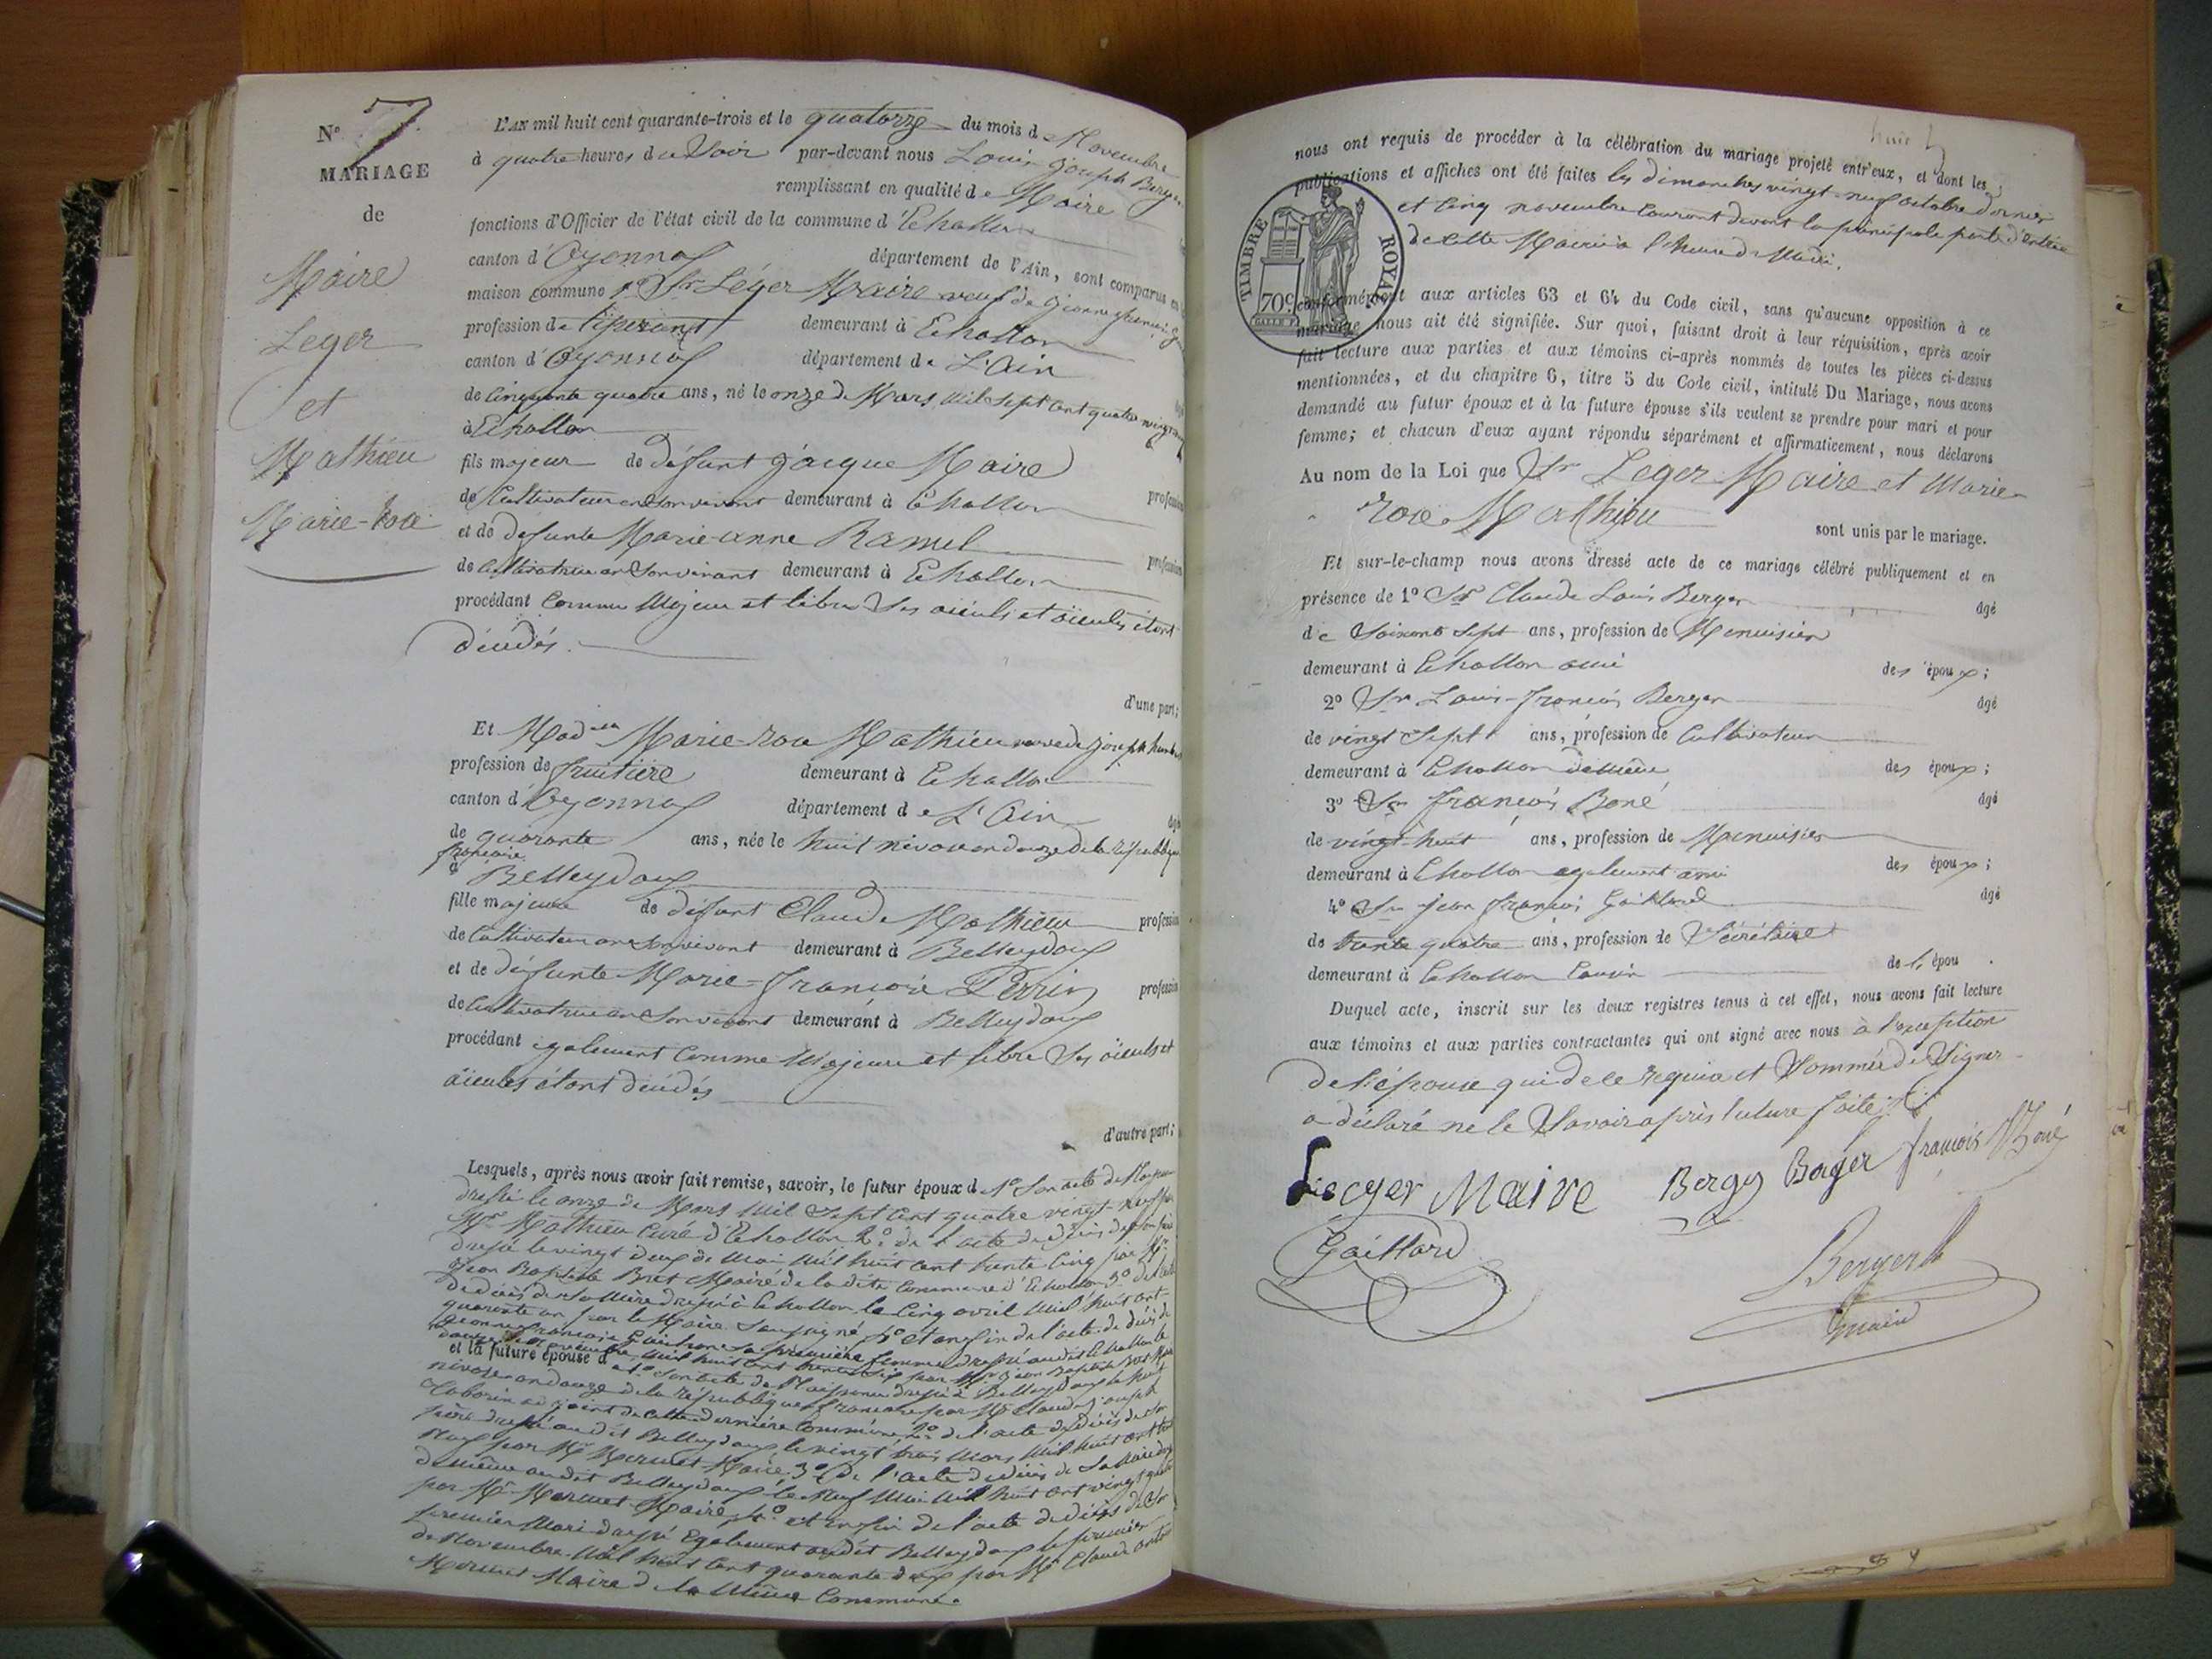 N° 7
MARIAGE
de
Maire
Leger
et
Mathieu
Marie-Rose
L'AN mil huit cent quarante-trois et le quatorze du mois de Novembre
à quatre heures du Soir par-devant nous Louis Joseph Berger
remplissant en qualité de Maire
fonctions d'Officier de l'état civil de la commune d'Echallon
canton d'Oyonnax département de l'Ain, sont comparus en
maison commune Sr Léger Maire veuf de Jeanne françoise
profession de demeurant à Echallon
canton d'Oyonnax département de L'Ain
de Cinquante quatre ans, né le onze de Mars mil Sept Cent quatre vingt
à Echallon
fils majeur de défunt Jacque Maire
de Cultivateur en Son vivant demeurant à Echallon profession
et de défunte Marie-anne Ramel
de Cultivatrice en Son vivant demeurant à Echallon profession
procédant Comme Majeur et libre Ses aïeuls et aïeules étant
décédés.
d'une part;
Et Marie-rose Mathieu veuve de Joseph
profession de fruitière demeurant à Echallon
canton d'Oyonnax département de L'Ain
de quarante ans, née le huit nivose an douze de la république
francaise
à Belleydoux
fille majeure de défunt Claude Mathieu profession
de Cultivateur en Son vivant demeurant à Belleydoux
et de défunte Marie-françoise Perrin profession
de Cultivatrice en Son vivant demeurant à Belleydoux
procédant egalement Comme Majeure et libre Ses aïeuls et
aïeules étant décédés
d'autre part;
Lesquels, après nous avoir fait remise, savoir, le futur époux d 1° Son acte de Naissance
dressé le onze de Mars mil Sept Cent quatre vingt-neuf par
Mr Mathieu Curé d'Echallon 2° de l'acte de décès de son père
dressé le vingt deux de Mai mil huit cent trente Cinq par Mr
Jean Baptiste Bret Maire de la dite Commune d'Echallon 3° de l'acte
de décès de sa Mère dressé à Echallon le Cinq avril mil huit Cent
quarante un par le Maire Soussigné 4° et enfin de l'acte de décès de
Jeanne françoise sa première femme dressé audit Echallon le
mil huit Cent trente six par Mr Jean Baptiste Bret Maire
et la future épouse d 1° Son acte de Naissance dressé à Belleydoux le huit
nivose an douze de la république francaise par Mr Claude Joseph
adjoint de Cette dernière Commune 2° de l'acte de décès de Son
père dressé audit Belleydoux le vingt trois Mars mil huit Cent
par Mr Mermet Maire 3° de l'acte de décès de Sa Mère
de même audit Belleydoux le Neuf Mai mil huit Cent vingt quatre
par Mr Mermet Maire, 4° et enfin de l'acte de décès de Son
premier Mari dressé également audit Belleydoux le premier
de Novembre mil huit Cent quarante deux par Mr Claude
Mermet Maire de la Même Commune.
nous ont requis de procéder à la célébration du mariage projeté entr'eux, et dont les
publications et affiches ont été faites les dimanches vingt-neuf octobre dernier
et Cinq novembre Courant devant la principale porte d'entrée
de Cette Mairie à l'heure de Midi.
TIMBRE ROYAL
70 c
conformément aux articles 63 et 64 du Code civil, sans qu'aucune opposition à ce
mariage nous ait été signifiée. Sur quoi, faisant droit à leur réquisition, après avoir
fait lecture aux parties et aux témoins ci-après nommés de toutes les pièces ci-dessus
mentionnées, et du chapitre 6, titre 5 du Code civil, intitulé Du Mariage, nous avons
demandé au futur époux et à la future épouse s'ils veulent se prendre pour mari et pour
femme; et chacun d'eux ayant répondu séparément et affirmativement, nous déclarons
Au nom de la Loi que Sr Leger Maire et Marie-
rose Mathieu sont unis par le mariage.
Et sur-le-champ nous avons dressé acte de ce mariage célébré publiquement et en
présence de 1° Sr Claude Louis Berger âgé
de Soixante Sept ans, profession de Menuisier
demeurant à Echallon ami des époux;
2° Sr Louis-françois Berger âgé
de vingt Sept ans, profession de Cultivateur
demeurant à Echallon des époux;
3° Sr françois Boné âgé
de vingt-huit ans, profession de Menuisier
demeurant à Echallon egalement ami des époux;
4° Sr Jean françois Gaillard âgé
de trente quatre ans, profession de Sécrétaire
demeurant à Echallon Cousin de l'épou
Duquel acte, inscrit sur les deux registres tenus à cet effet, nous avons fait lecture
aux témoins et aux parties contractantes qui ont signé avec nous à l'exception
de l'épouse qui de ce requise et Sommée de Signer
a déclaré ne le Savoir après lecture faite
Leger Maire Berger Berger francois Boné
Gaillard
Berger
maire